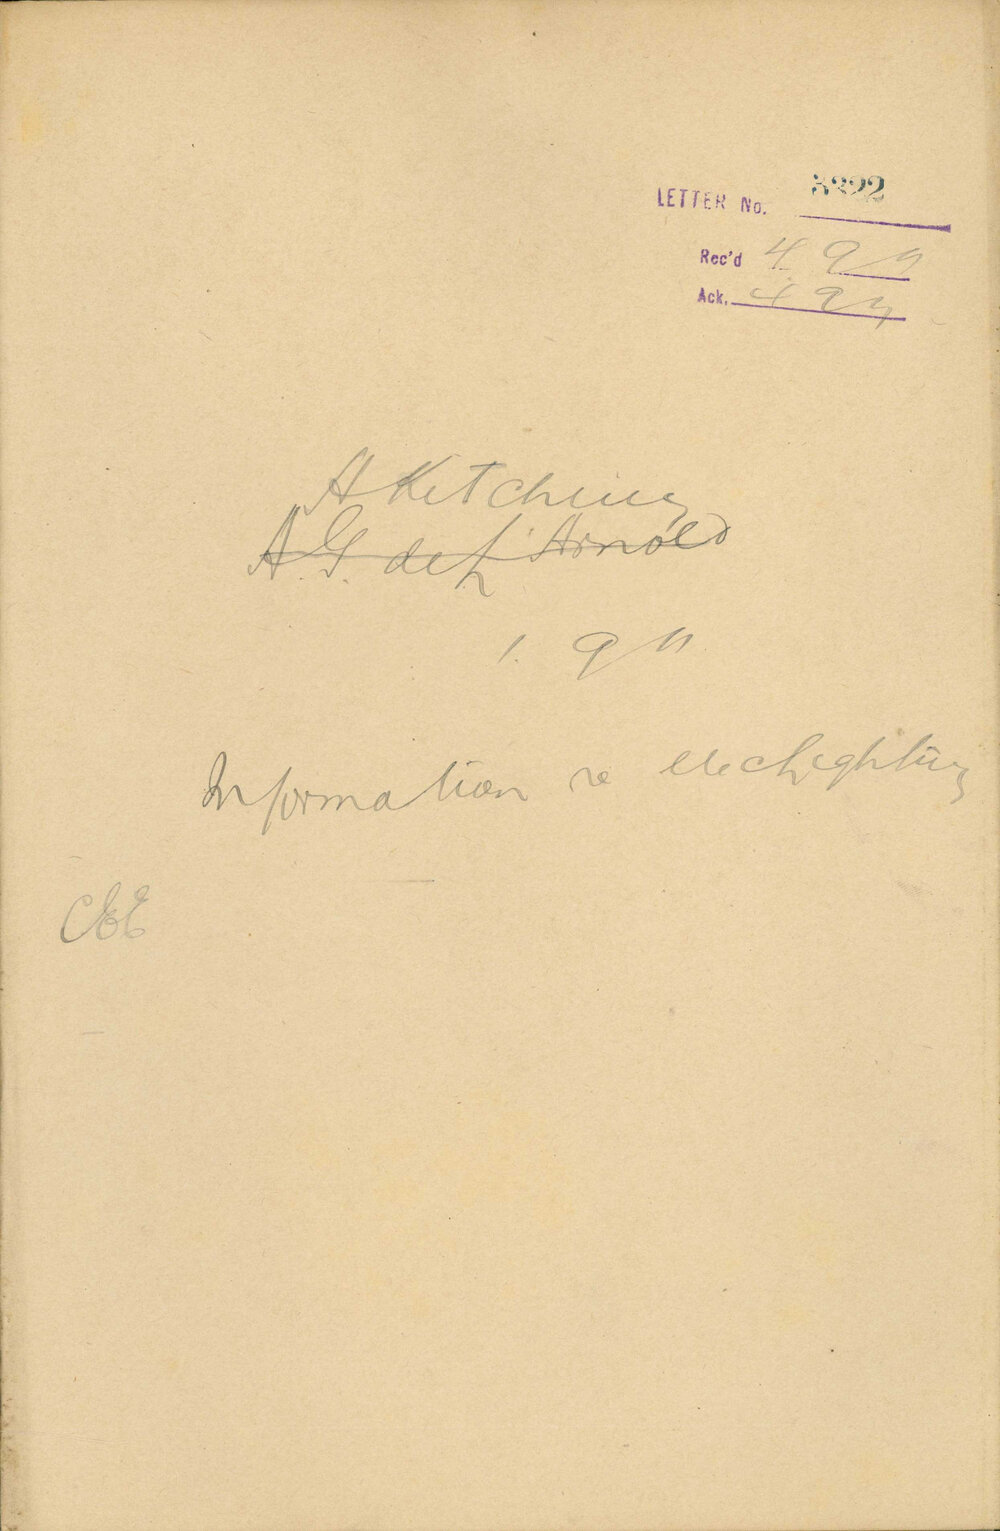 LETTER No. 3322
Rec'd 4 9 11
Ack. 4 9 11
A Ketching
A. G. de L. Arnold
1. 9 11
Information re elec lighting